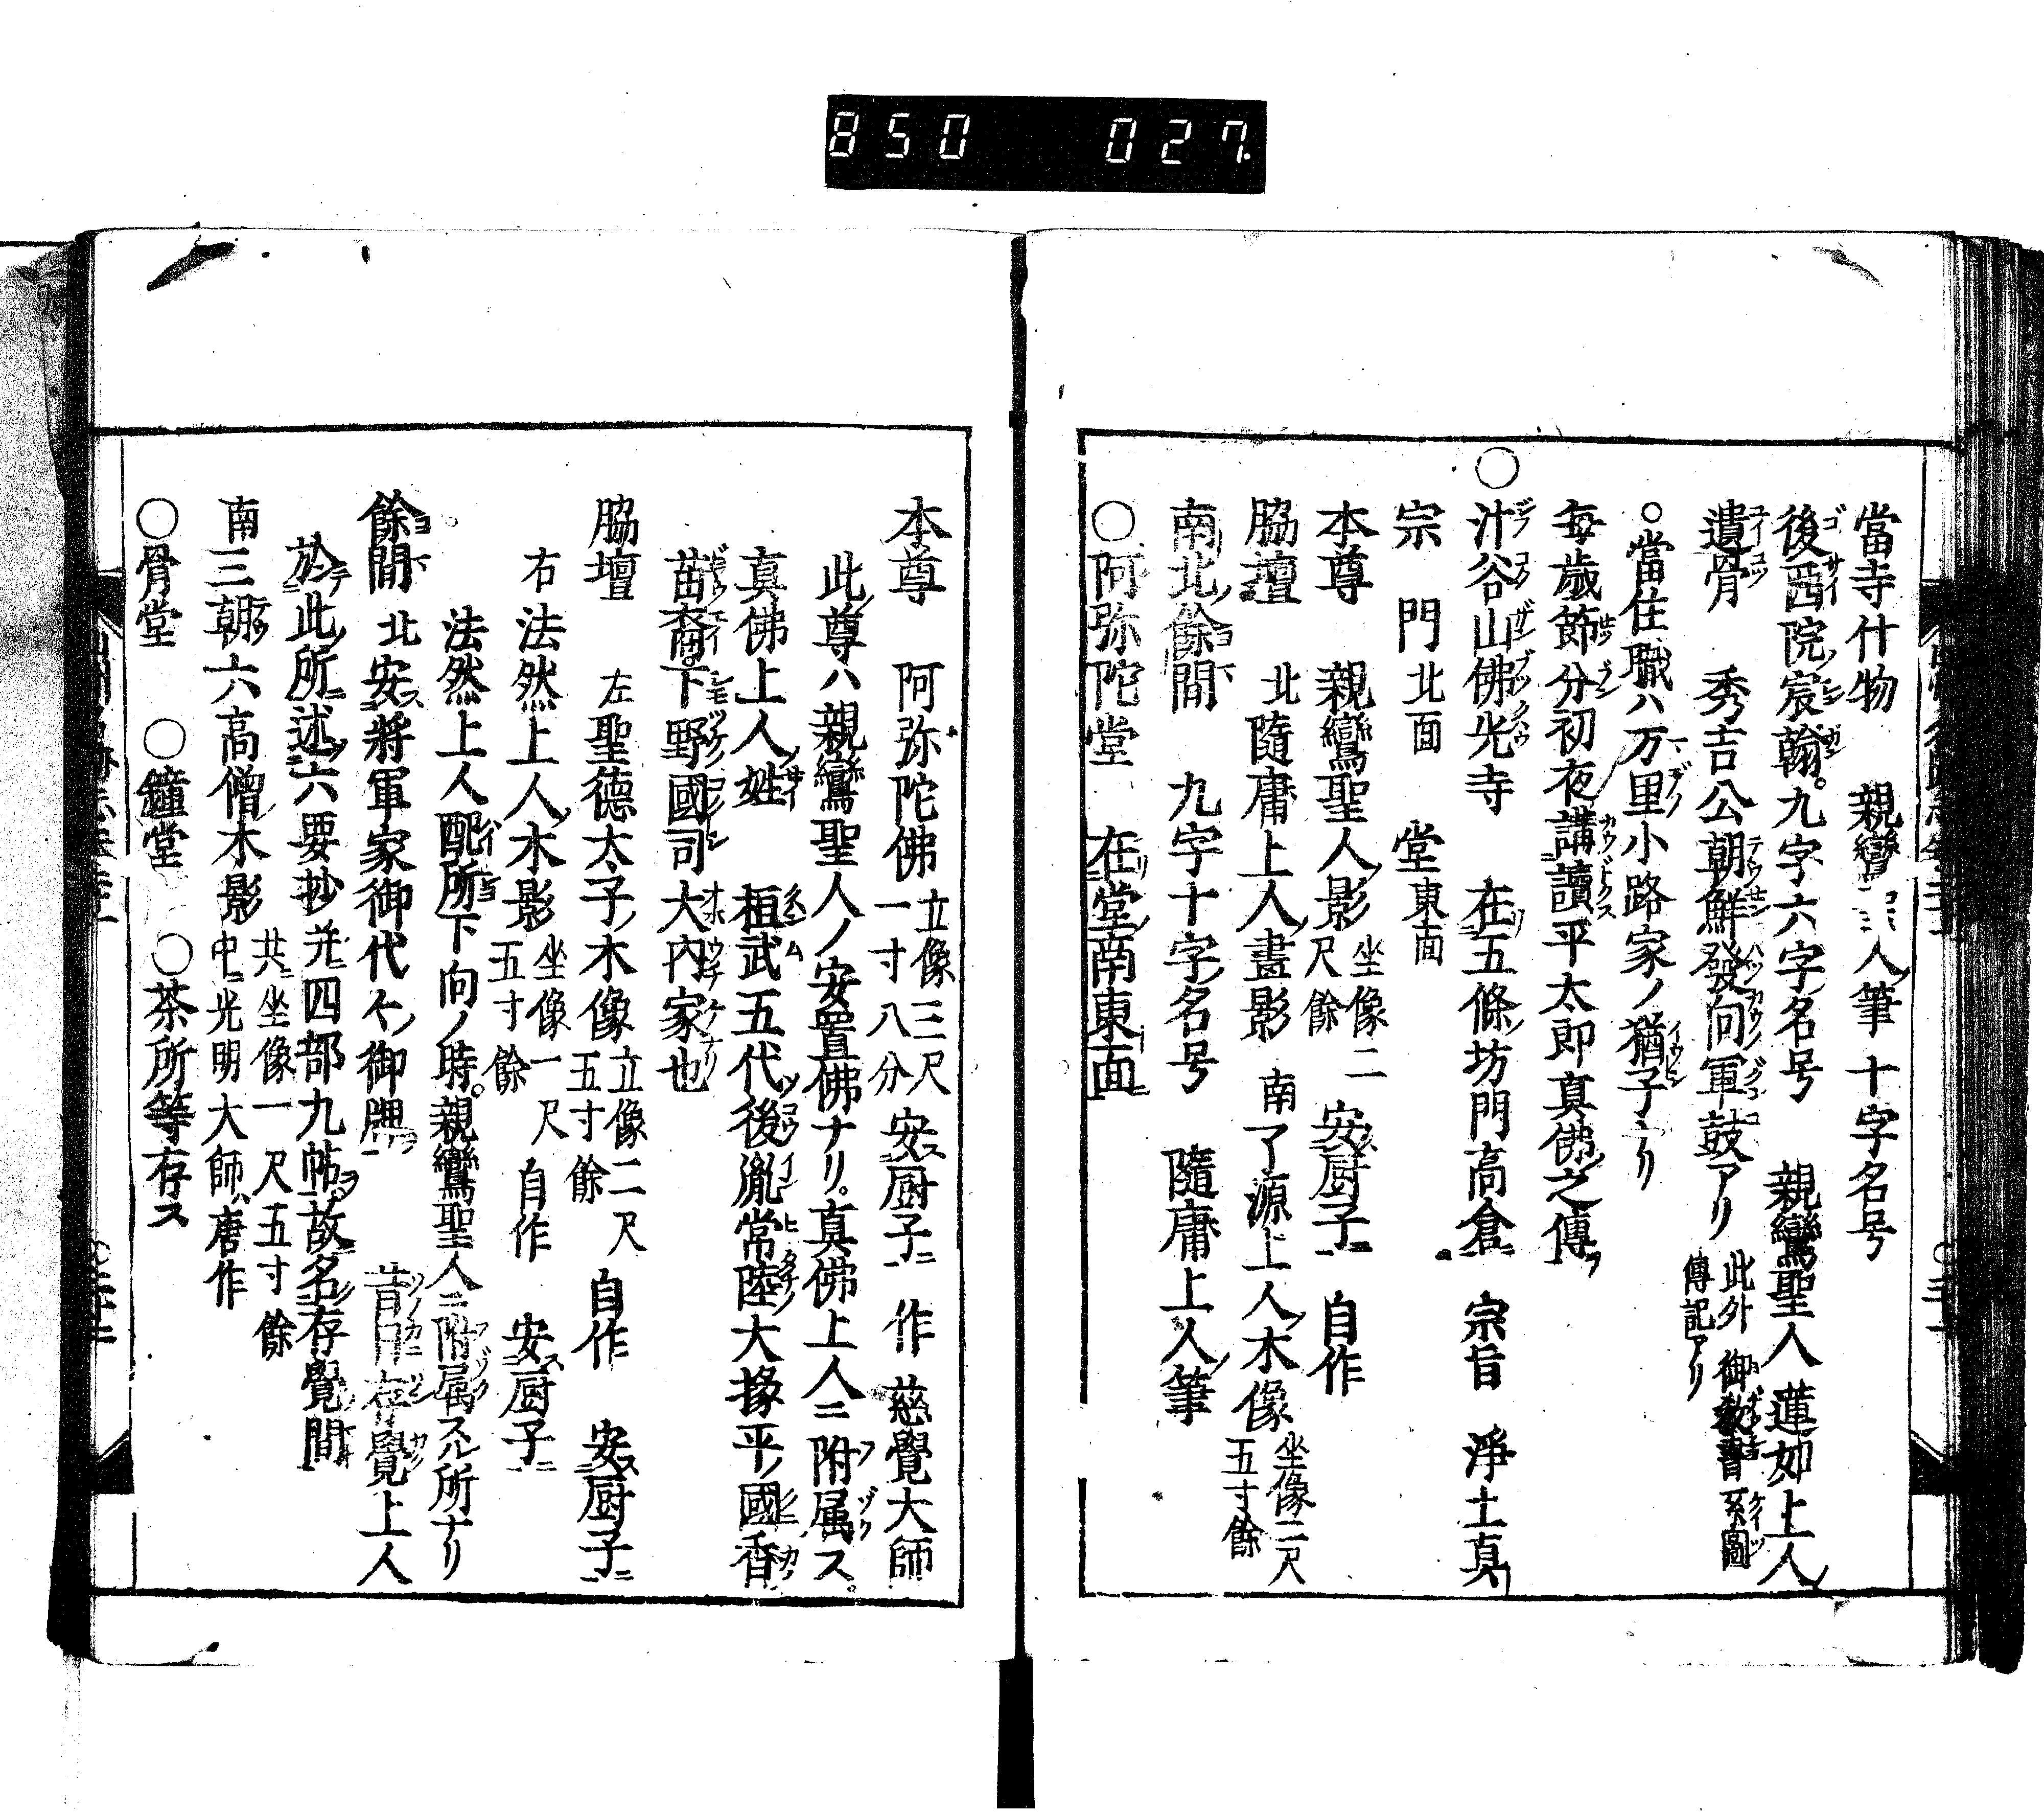 850 027.
當寺什物 親鸞聖人筆十字名号
後西院宸翰。九字六字名号 親鸞聖人蓮如上人
遺骨 秀吉公朝鮮發向軍鼓アリ 此外御教書系圖
傳記アリ
○當住職ハ万里小路家ノ猶子ナリ
毎歳節分初夜講讀平太郎真佛之傳
○汁谷山佛光寺 在五條坊門高倉 宗旨 淨土真
宗 門北面 堂東面
本尊 親鸞聖人影坐像二尺餘 安厨子 自作
脇壇 北隨庸上人畫影 南了源上人木像坐像二尺五寸餘
南北餘間 九字十字名号 隨庸上人筆
○阿弥陀堂 在堂南東面
本尊 阿弥陀佛立像三尺一寸八分 安厨子 作慈覺大師
此尊ハ親鸞聖人ノ安置佛ナリ。真佛上人ニ附属ス。
真佛上人姓 桓武五代後胤常陸大掾平國香
苗裔。下野國司大内家也
脇壇 左聖德太子木像立像二尺五寸餘 自作 安厨子
右法然上人木影坐像一尺五寸餘 自作 安厨子
法然上人配所下向ノ時。親鸞聖人ニ附属スル所ナリ
餘間 北安將軍家御代々御牌 昔日存覺上人
於此所述六要抄并四部九帖故名存覺間
南三朝六高僧木影共坐像一尺五寸餘
中光明大師ハ唐作
○骨堂 ○鐘堂 ○茶所等存ス